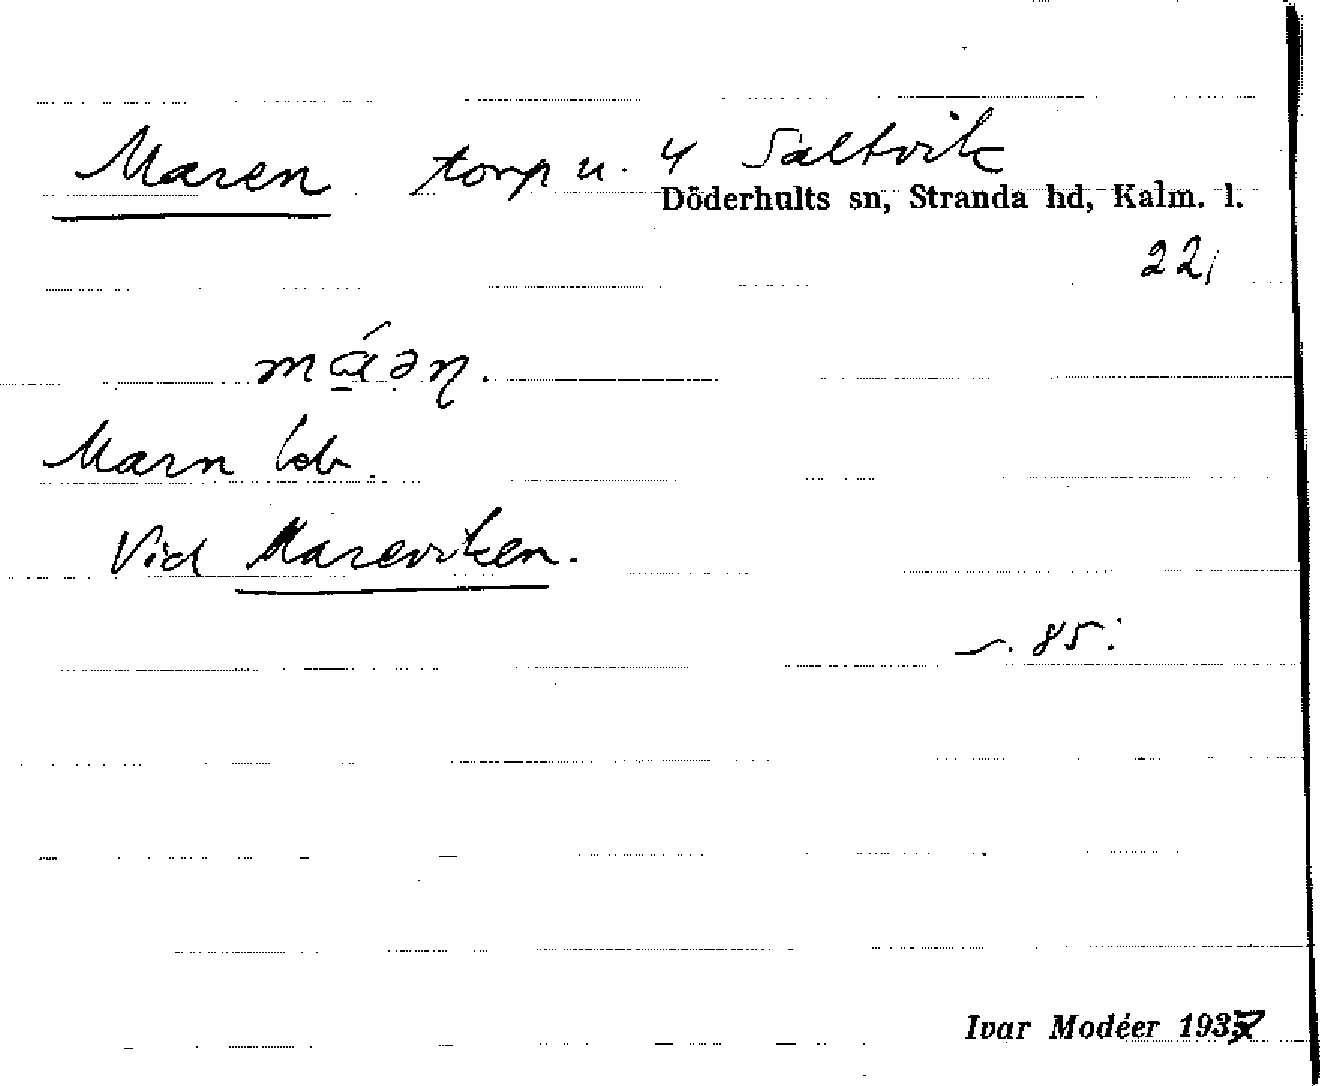 Maren torp u. 4 Saltvik
Döderhults sn, Stranda hd, Kalm. l.
22;
Marn
Vid Mareviken.
s. 85.
Ivar Modéer 1937